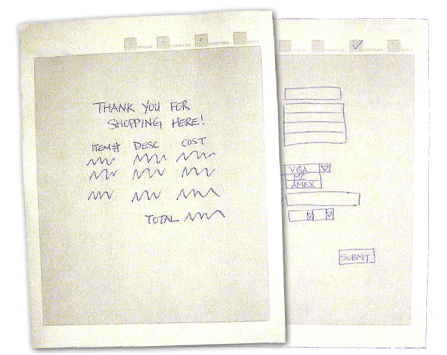 THANK YOU FOR
SHOPPING HERE!
ITEM# DESC COST
TOTAL
MC
AMAX
SUBMIT